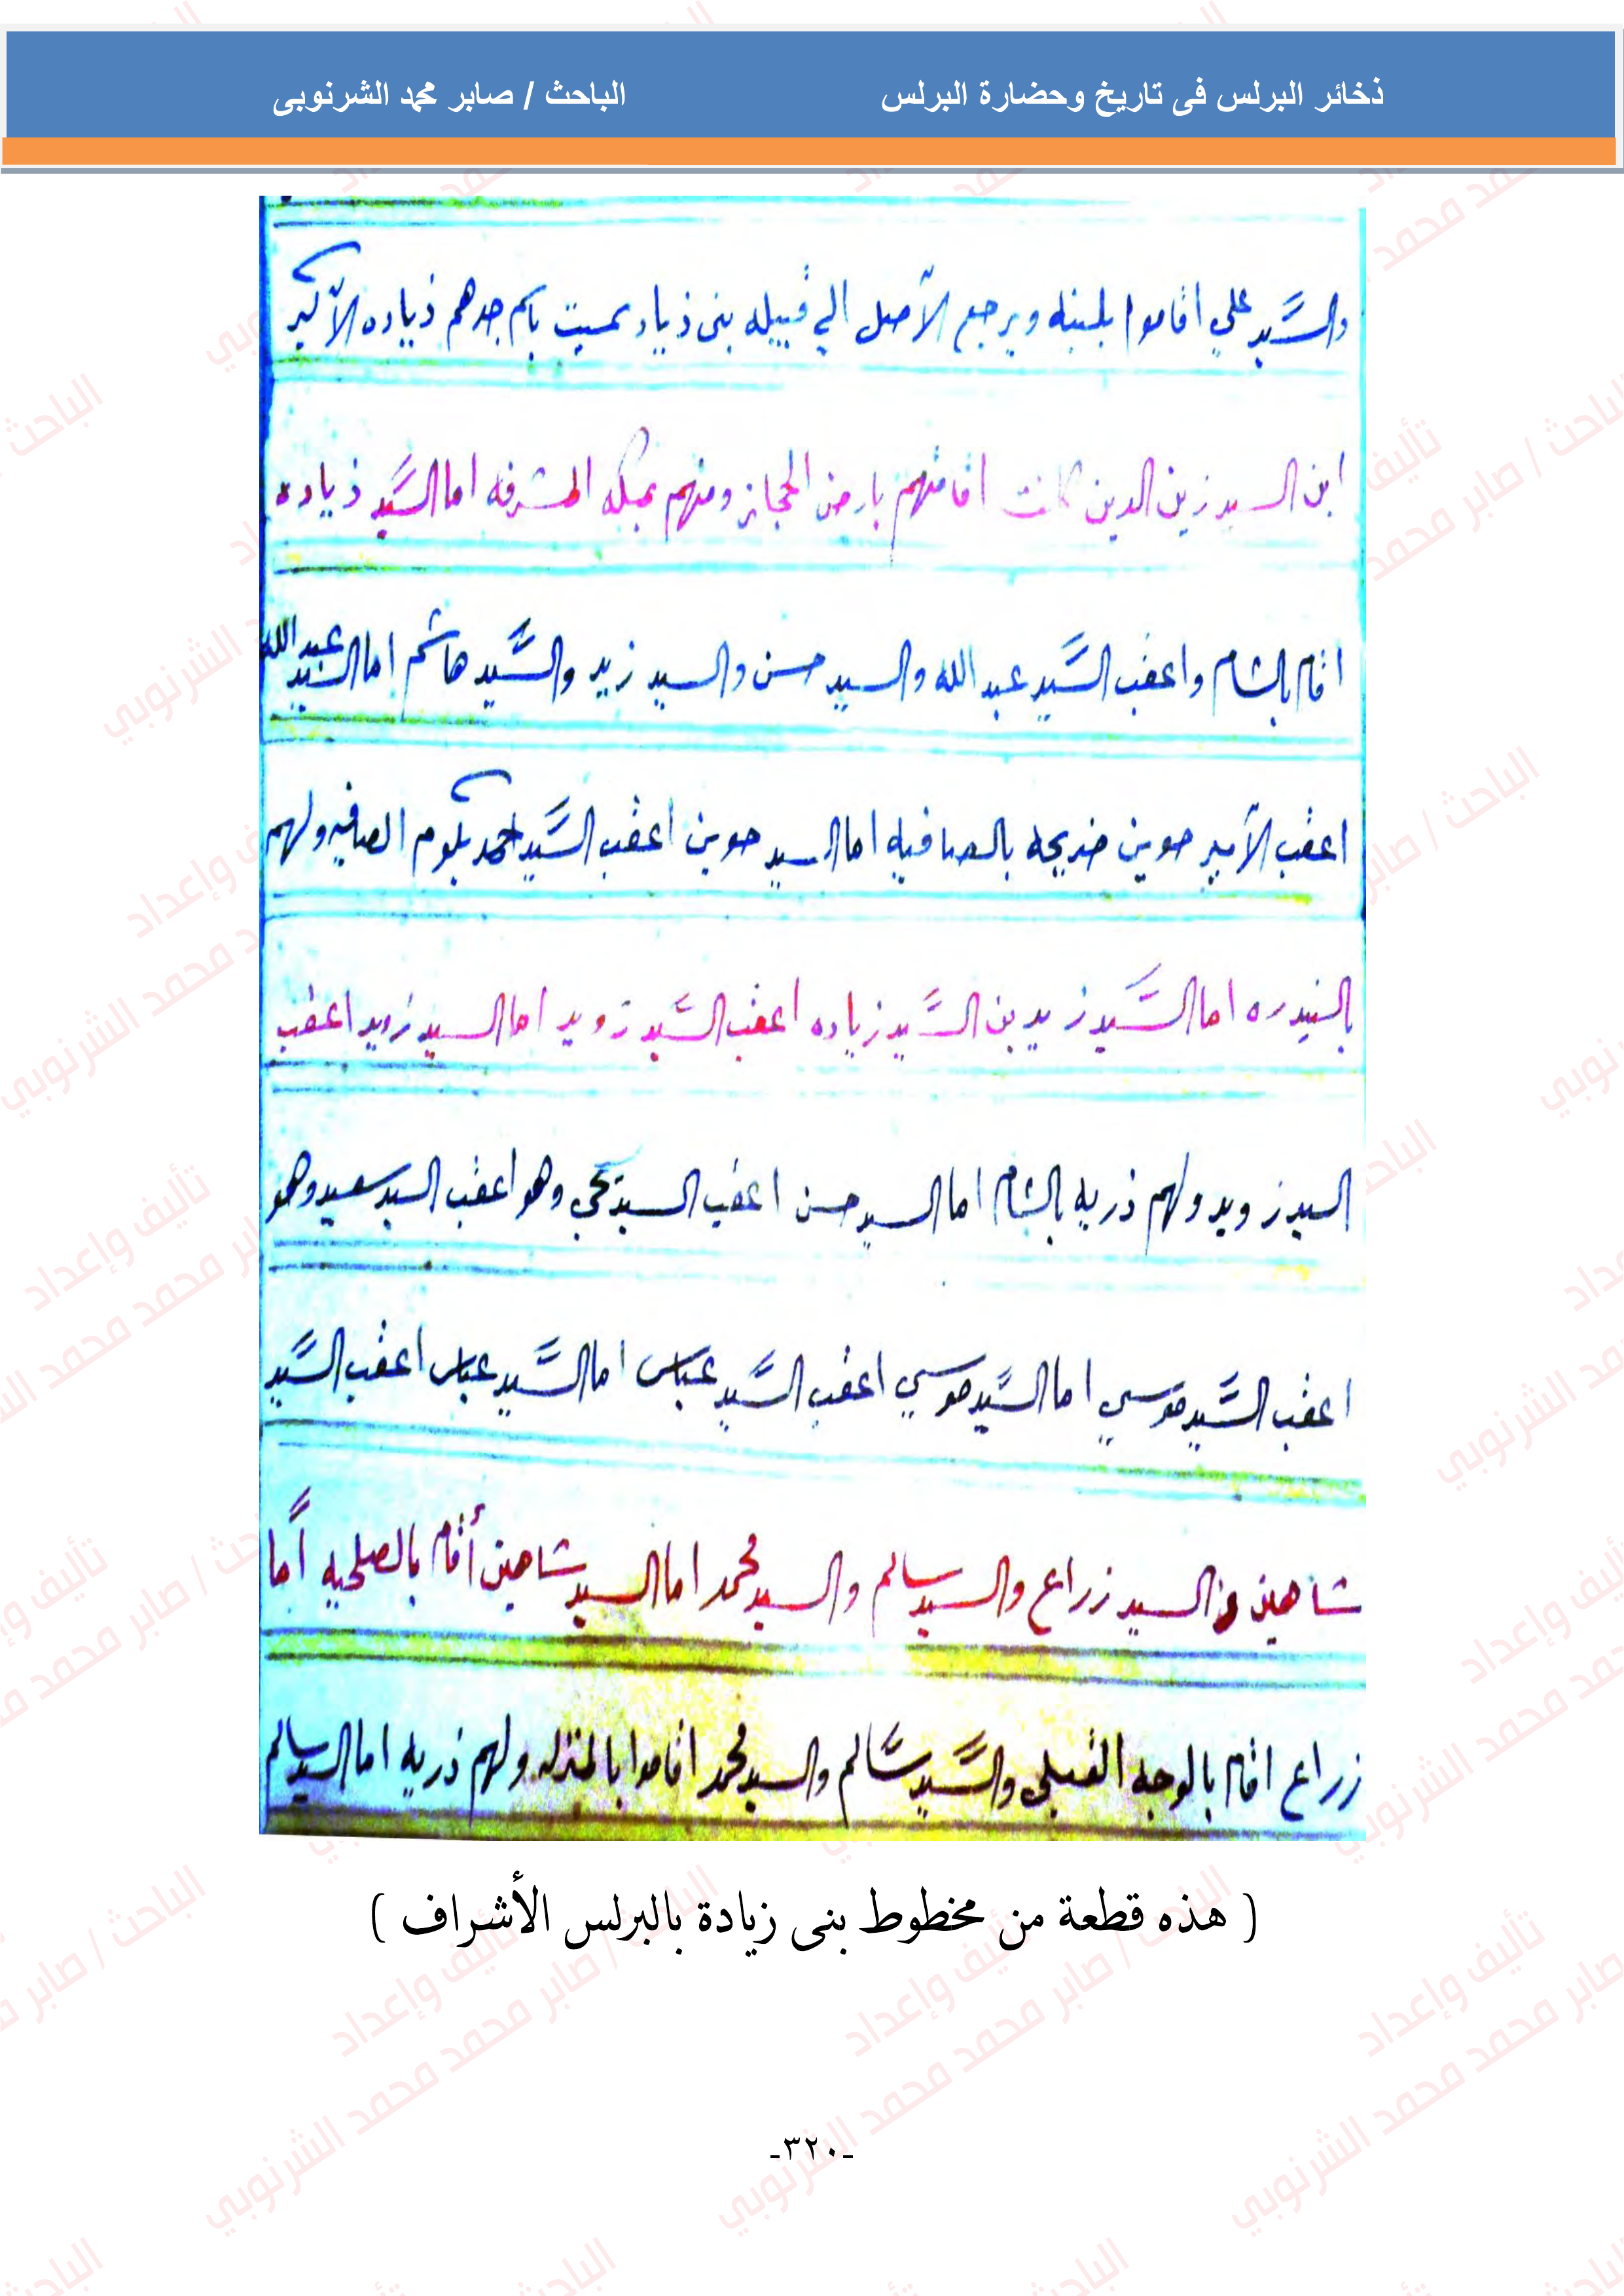 ذخائر البرلس فى تاريخ وحضارة البرلس
الباحث / صابر محمد الشرنوبى
والسَّيد علي اقاموا ويرجع الآصل الي قبيله بنى ذياد سميت باسم جدهم ذياده الآكبر
ابن السيد زين الدين كانت اقامتهم بارض الحجاز ومنهم بمكه المشرفه اما السَّيد ذياده
اقام بالشام واعقب السَّيد عبد الله والسيد حسن والسيد زيد والسَّيد هاشم اما السيد عبد الله
اعقب الآمير حوين ضريحه بالصافيه اما السيد حوين اعقب السَّيد احمد بكوم الصافيه ولهم
اما السَّيد زيد بن السَّيد زياده اعقب السَّيد زويد اما السيد زويد اعقب
السيد زويد ولهم ذريه بالشام اما السيد حسن اعقب السيد يحي وهو اعقب السيد سعيد وهو
اعقب السَّيد موسي اما السَّيد موسي اعقب السَّيد عباس اما السَّيد عباس اعقب السَّيد
شاهين والسيد زراع والسيد سالم والسيد محمد اما السيد شاهين أقام بالصلحيه أما
زراع اقام بالوجه القبلى والسَّيد سَّالم والسيد محمد اقاموا بالمنزله ولهم ذريه اما السيد سالم
( هذه قطعة من مخطوط بنى زيادة بالبرلس الأشراف )
-٣٢٠-
تأليف وإعداد
الباحث / صابر محمد محمد الشرنوبي